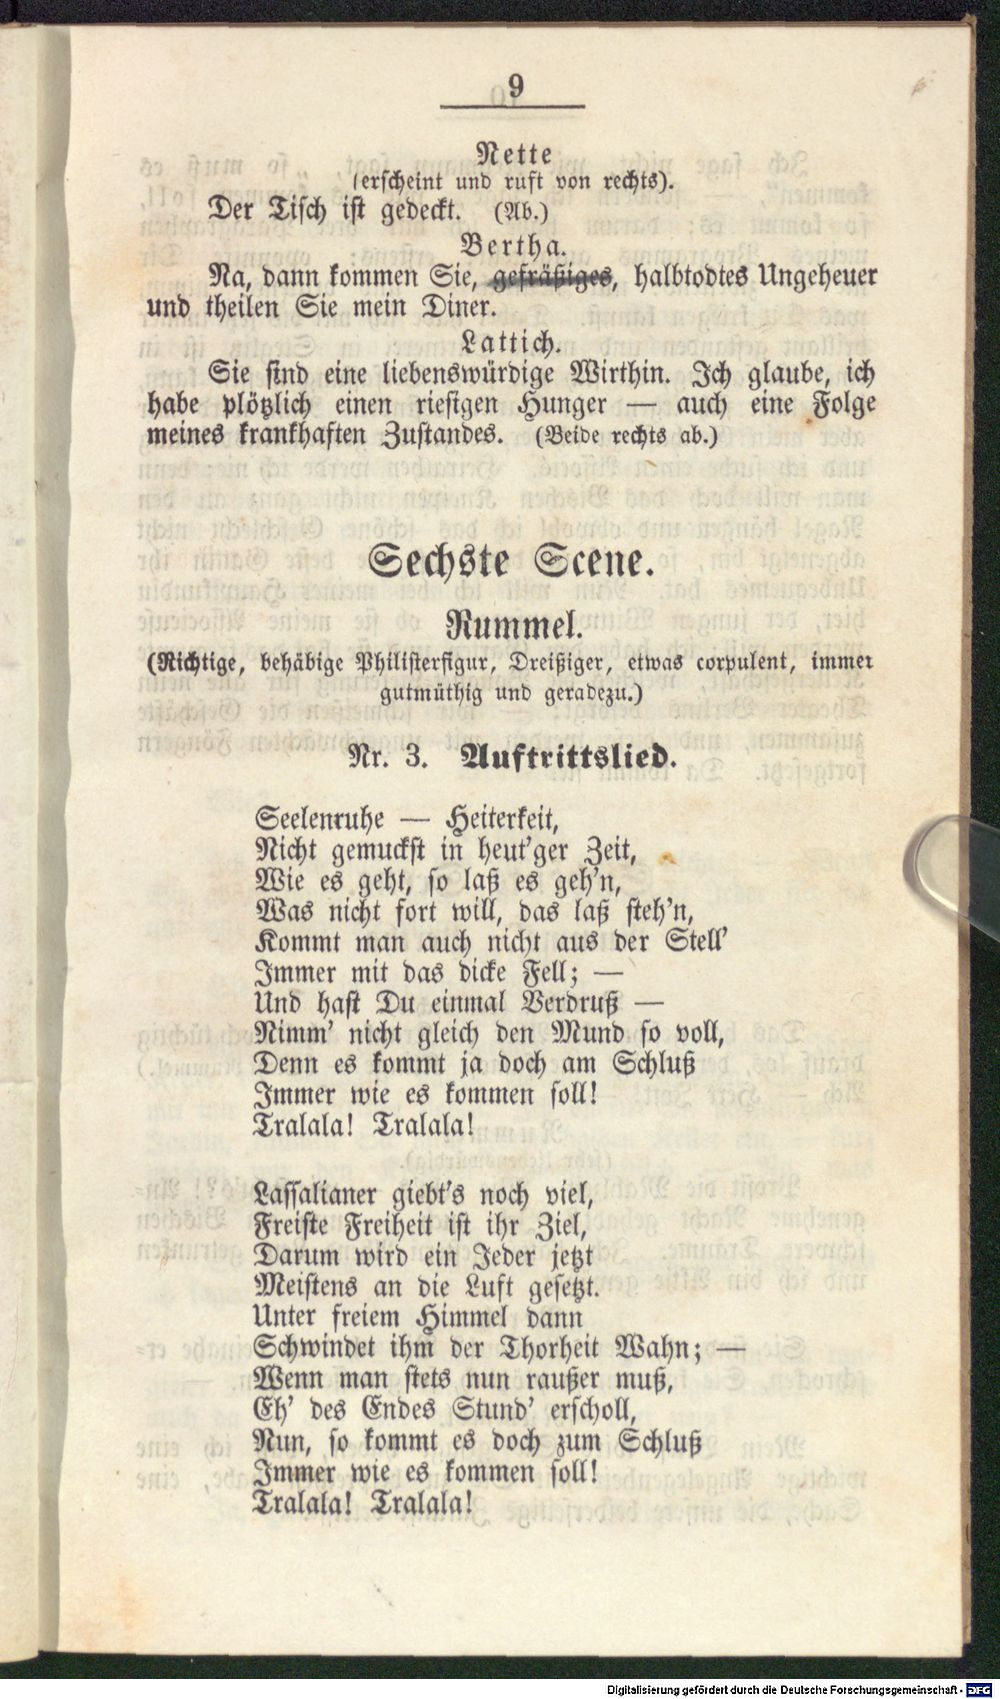 9
Nette
(erscheint und ruft von rechts).
Der Tisch ist gedeckt. (Ab.)
Bertha.
Na, dann kommen Sie, gefräßiges, halbtodtes Ungeheuer
und theilen Sie mein Diner.
Lattich.
Sie sind eine liebenswürdige Wirthin. Ich glaube, ich
habe plötzlich einen riesigen Hunger — auch eine Folge
meines krankhaften Zustandes. (Beide rechts ab.)
Sechste Scene.
Rummel.
(Richtige, behäbige Philisterfigur, Dreißiger, etwas corpulent, immer
gutmüthig und geradezu.)
Nr. 3. Auftrittslied.
Seelenruhe — Heiterkeit,
Nicht gemuckst in heut'ger Zeit,
Wie es geht, so laß es geh'n,
Was nicht fort will, das laß steh'n,
Kommt man auch nicht aus der Stell'
Immer mit das dicke Fell; —
Und hast Du einmal Verdruß —
Nimm' nicht gleich den Mund so voll,
Denn es kommt ja doch am Schluß
Immer wie es kommen soll!
Tralala! Tralala!
Lassalianer giebt's noch viel,
Freiste Freiheit ist ihr Ziel,
Darum wird ein Jeder jetzt
Meistens an die Luft gesetzt.
Unter freiem Himmel dann
Schwindet ihm der Thorheit Wahn; —
Wenn man stets nun raußer muß,
Eh' des Endes Stund' erscholl,
Nun, so kommt es doch zum Schluß
Immer wie es kommen soll!
Tralala! Tralala!
Digitalisierung gefördert durch die Deutsche Forschungsgemeinschaft - DFG